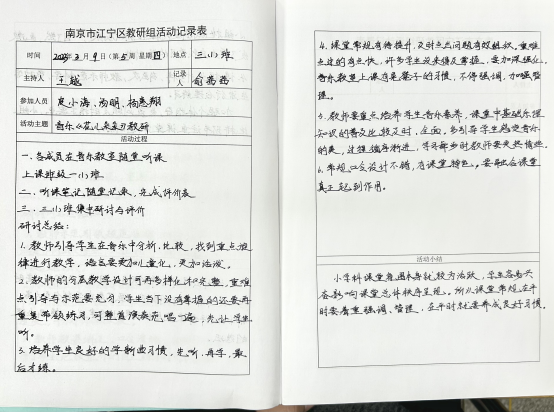 南京市江宁区教研组活动记录表
时间 2023年3月9日(第5周 星期四) 地点 三小班
主持人 王越 记录人 俞茜茜
参加人员 夏小海、汤明、杨惠翔
活动主题 音乐《花儿朵朵》教研
活动过程
一、各成员在音乐教室随堂听课
上课班级一小班
二、听课笔记随堂记录,完成评价表
三、三小班集中研讨与评价
研讨总结:
1.教师引导学生在音乐中分析、比较,找到重点旋
律进行教学,语言要更加儿童化,更加活泼。
2.教师的问底教学设计可再多样化和完整,重难
点引导与示范要充分,学生当下没有掌握的还要再
重复带领练习,可整首演奏范唱一遍,先让学生
听。
3.培养学生良好的学习习惯,先听,再学,最
后才练。
4.课堂常规有待提升,及时点出问题有效解决。重难
点过的有点快,许多学生没来得及掌握,要加深强化。
音乐教室上课有是凳子的习惯,不停强调,加强管
理。
5.教师要重点培养学生音乐素养,课堂中基础乐理
知识的普及比较及时,全面,多引导学生感受音乐
的美,过程循序渐进,学习部分时教师要更热情些。
6.常规口令设计不错,有课堂特色。要再出会课堂
真正起到作用。
活动小结
小学科课堂有通本身就较为活跃,学生容易兴
奋影响课堂总体秩序呈现。所以课堂常规在平
时要着重强调、管理,在平时就要养成良好习惯。